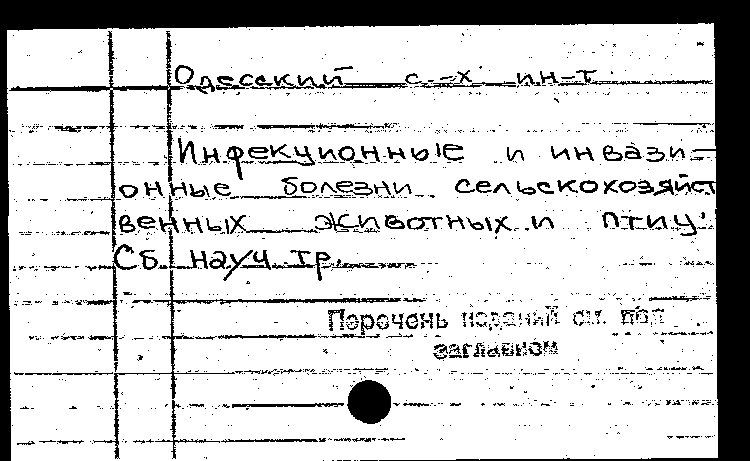 Одесский с.-х. ин-т
Инфекционные и инвази-
онные болезни сельскохозяйст
венных животных и птиц.
Сб. науч. тр.
Перечень изданий см. под
заглавием